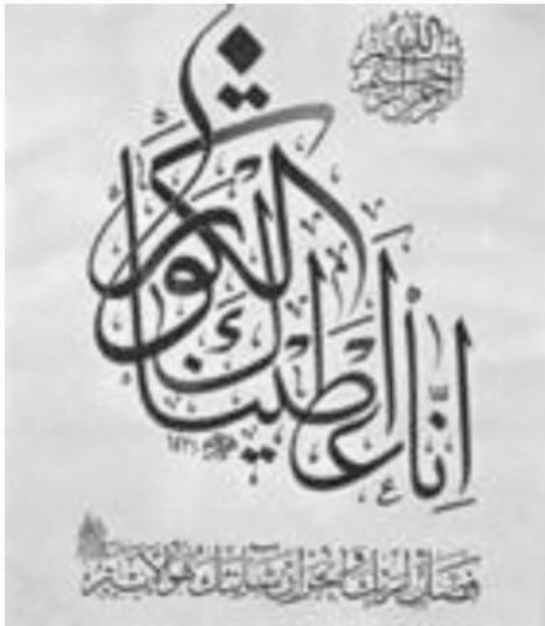 بسم الله الرحمن الرحيم
إنا أعطيناك الكوثر
فصل لربك وانحر إن شانئك هو الأبتر